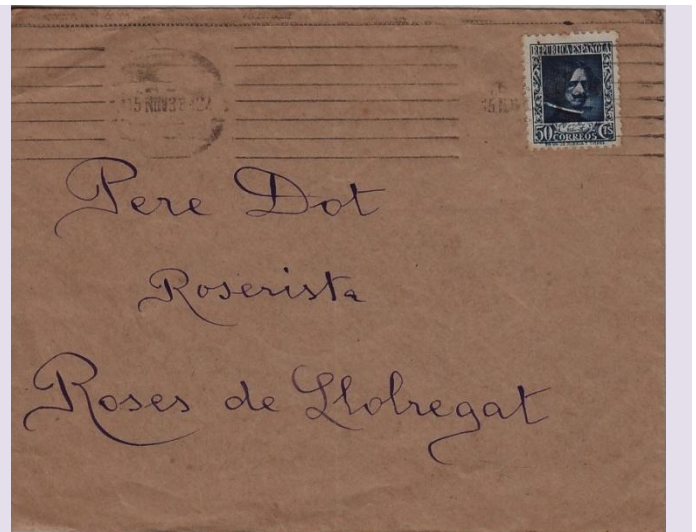 REPUBLICA ESPAÑOLA
50 CORREOS Cts
Pere Dot
Roserista
Roses de Llobregat